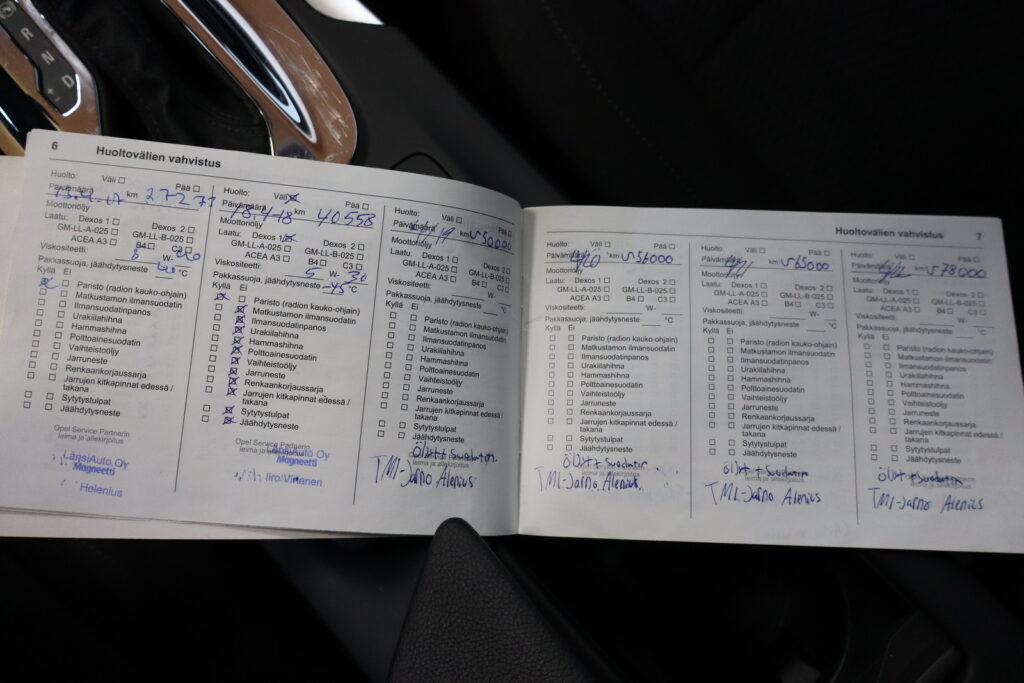 R
N
D
6 Huoltovälien vahvistus
Huolto: Väli ☐ Pää ☐
Päivämäärä km 27271
Moottoriöljy
Laatu: Dexos 1 ☐ Dexos 2 ☐
GM-LL-A-025 ☐ GM-LL-B-025 ☐
ACEA A3 ☐ B4 ☐ C3 ☐
Viskositeetti: W-
Pakkassuoja, jäähdytysneste °C
Kyllä Ei
Paristo (radion kauko-ohjain)
Matkustamon ilmansuodatin
Ilmansuodatinpanos
Urakiilahihna
Hammashihna
Polttoainesuodatin
Vaihteistoöljy
Jarruneste
Renkaankorjaussarja
Jarrujen kitkapinnat edessä /
takana
Sytytystulpat
Jäähdytysneste
Opel Service Partnerin
leima ja allekirjoitus
LänsiAuto Oy
Magneetti
Helenius
Huolto: Väli ☒ Pää ☐
Päivämäärä 18.4-18 km 40558
Moottoriöljy
Laatu: Dexos 1 ☒ Dexos 2 ☐
GM-LL-A-025 ☐ GM-LL-B-025 ☐
ACEA A3 ☐ B4 ☐ C3 ☐
Viskositeetti: 5 W- 30
Pakkassuoja, jäähdytysneste -45 °C
Kyllä Ei
Paristo (radion kauko-ohjain)
Matkustamon ilmansuodatin
Ilmansuodatinpanos
Urakiilahihna
Hammashihna
Polttoainesuodatin
Vaihteistoöljy
Jarruneste
Renkaankorjaussarja
Jarrujen kitkapinnat edessä /
takana
Sytytystulpat
Jäähdytysneste
Opel Service Partnerin
leima ja allekirjoitus
LänsiAuto Oy
Magneetti
Iiro Virtanen
Huolto: Väli ☐ Pää ☐
Päivämäärä km 50000
Moottoriöljy
Laatu: Dexos 1 ☐ Dexos 2 ☐
GM-LL-A-025 ☐ GM-LL-B-025 ☐
ACEA A3 ☐ B4 ☐ C3 ☐
Viskositeetti: W-
Pakkassuoja, jäähdytysneste °C
Kyllä Ei
Paristo (radion kauko-ohjain)
Matkustamon ilmansuodatin
Ilmansuodatinpanos
Urakiilahihna
Hammashihna
Polttoainesuodatin
Vaihteistoöljy
Jarruneste
Renkaankorjaussarja
Jarrujen kitkapinnat edessä /
takana
Sytytystulpat
Jäähdytysneste
öljyt + suodatin
leima ja allekirjoitus
TMI-Jarno Alenius
Huoltovälien vahvistus 7
Huolto: Väli ☐ Pää ☐
Päivämäärä km 56000
Moottoriöljy
Laatu: Dexos 1 ☐ Dexos 2 ☐
GM-LL-A-025 ☐ GM-LL-B-025 ☐
ACEA A3 ☐ B4 ☐ C3 ☐
Viskositeetti: W-
Pakkassuoja, jäähdytysneste °C
Kyllä Ei
Paristo (radion kauko-ohjain)
Matkustamon ilmansuodatin
Ilmansuodatinpanos
Urakiilahihna
Hammashihna
Polttoainesuodatin
Vaihteistoöljy
Jarruneste
Renkaankorjaussarja
Jarrujen kitkapinnat edessä /
takana
Sytytystulpat
Jäähdytysneste
öljyt + suodatin
leima ja allekirjoitus
TMI-Jarno Alenius
Huolto: Väli ☐ Pää ☐
Päivämäärä km 65000
Moottoriöljy
Laatu: Dexos 1 ☐ Dexos 2 ☐
GM-LL-A-025 ☐ GM-LL-B-025 ☐
ACEA A3 ☐ B4 ☐ C3 ☐
Viskositeetti: W-
Pakkassuoja, jäähdytysneste °C
Kyllä Ei
Paristo (radion kauko-ohjain)
Matkustamon ilmansuodatin
Ilmansuodatinpanos
Urakiilahihna
Hammashihna
Polttoainesuodatin
Vaihteistoöljy
Jarruneste
Renkaankorjaussarja
Jarrujen kitkapinnat edessä /
takana
Sytytystulpat
Jäähdytysneste
öljyt + suodatin
leima ja allekirjoitus
TMI-Jarno Alenius
Huolto: Väli ☐ Pää ☐
Päivämäärä km 78000
Moottoriöljy
Laatu: Dexos 1 ☐ Dexos 2 ☐
GM-LL-A-025 ☐ GM-LL-B-025 ☐
ACEA A3 ☐ B4 ☐ C3 ☐
Viskositeetti: W-
Pakkassuoja, jäähdytysneste °C
Kyllä Ei
Paristo (radion kauko-ohjain)
Matkustamon ilmansuodatin
Ilmansuodatinpanos
Urakiilahihna
Hammashihna
Polttoainesuodatin
Vaihteistoöljy
Jarruneste
Renkaankorjaussarja
Jarrujen kitkapinnat edessä /
takana
Sytytystulpat
Jäähdytysneste
öljyt + suodatin
TMI-Jarno Alenius